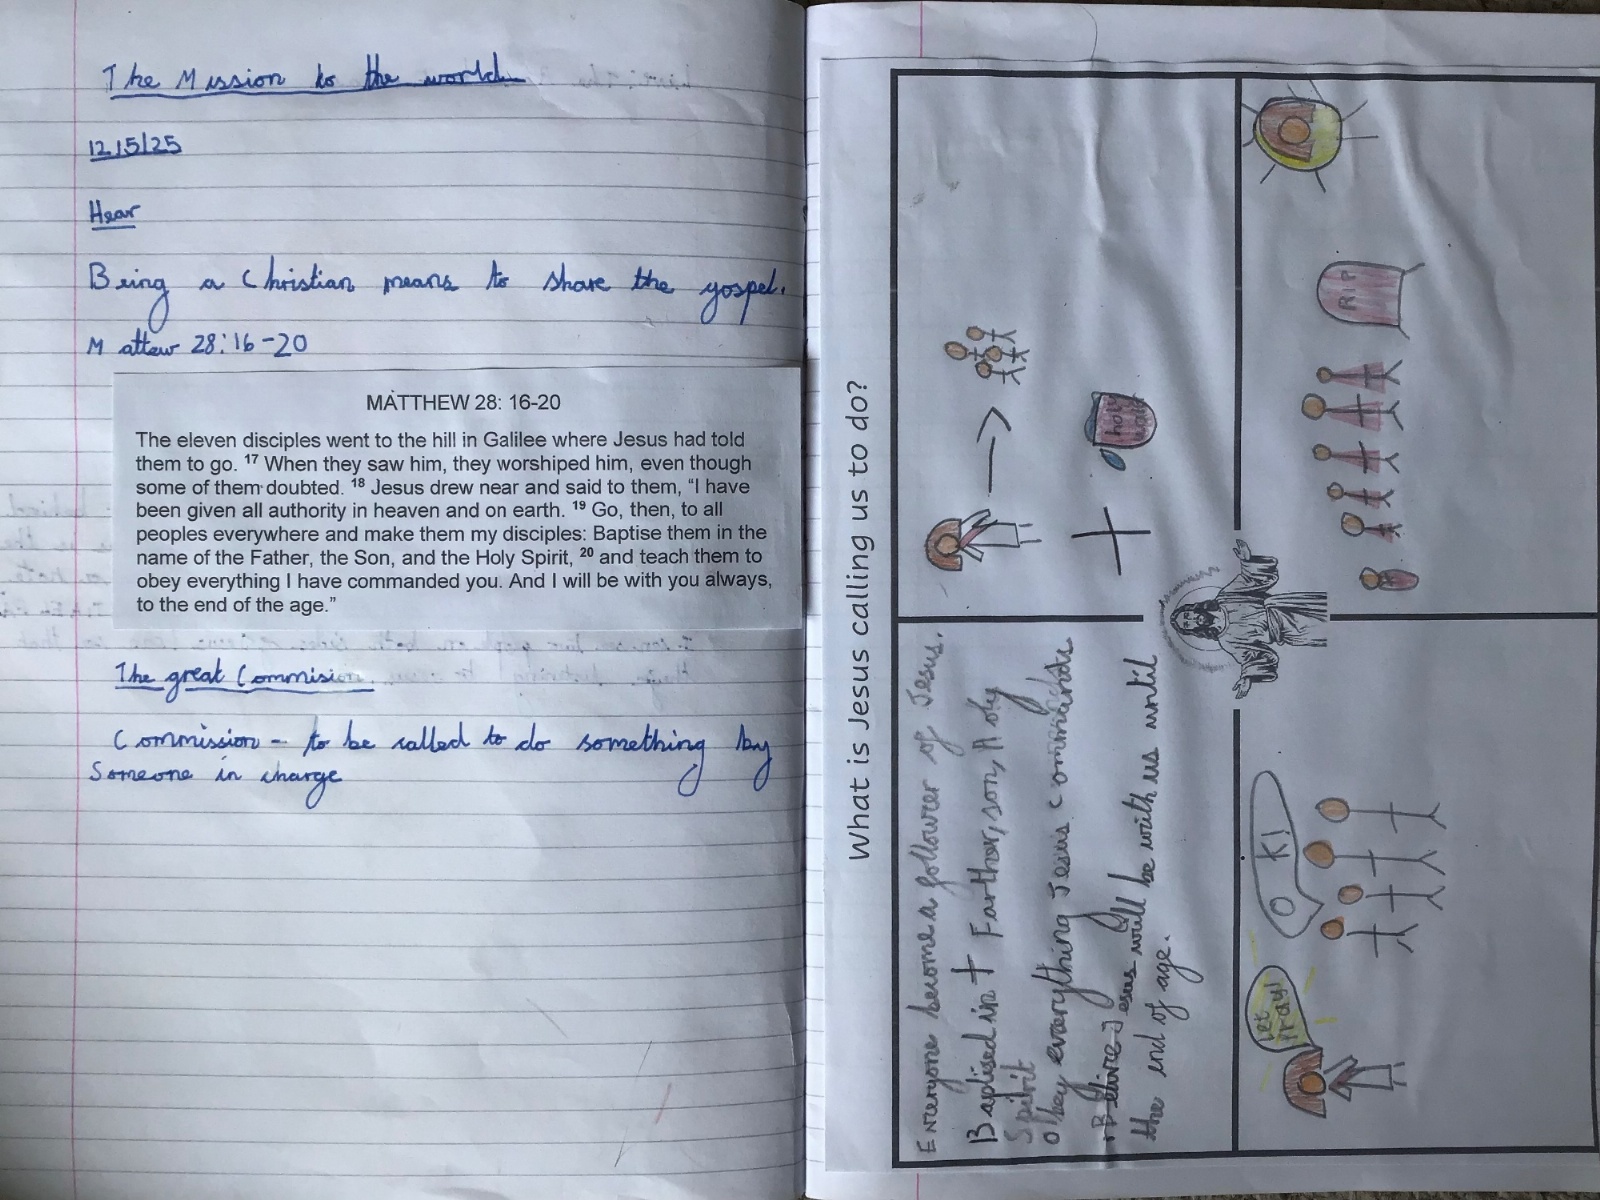 The Mission to the world
12/5/25
Hear
Being a Christian means to share the gospel.
Mattew 28:16-20
MATTHEW 28: 16-20
The eleven disciples went to the hill in Galilee where Jesus had told
them to go. 17 When they saw him, they worshiped him, even though
some of them doubted. 18 Jesus drew near and said to them, “I have
been given all authority in heaven and on earth. 19 Go, then, to all
peoples everywhere and make them my disciples: Baptise them in the
name of the Father, the Son, and the Holy Spirit, 20 and teach them to
obey everything I have commanded you. And I will be with you always,
to the end of the age.”
The great Commision
Commission - to be called to do something by
Someone in charge
What is Jesus calling us to do?
Everyone become a follower of Jesus.
Baptised in + Farther, son, Holy
Spirit
Obey everything Jesus commands
Jesus will be with us until
the end of age.
holy
RIP
Let
Pray!
OK!